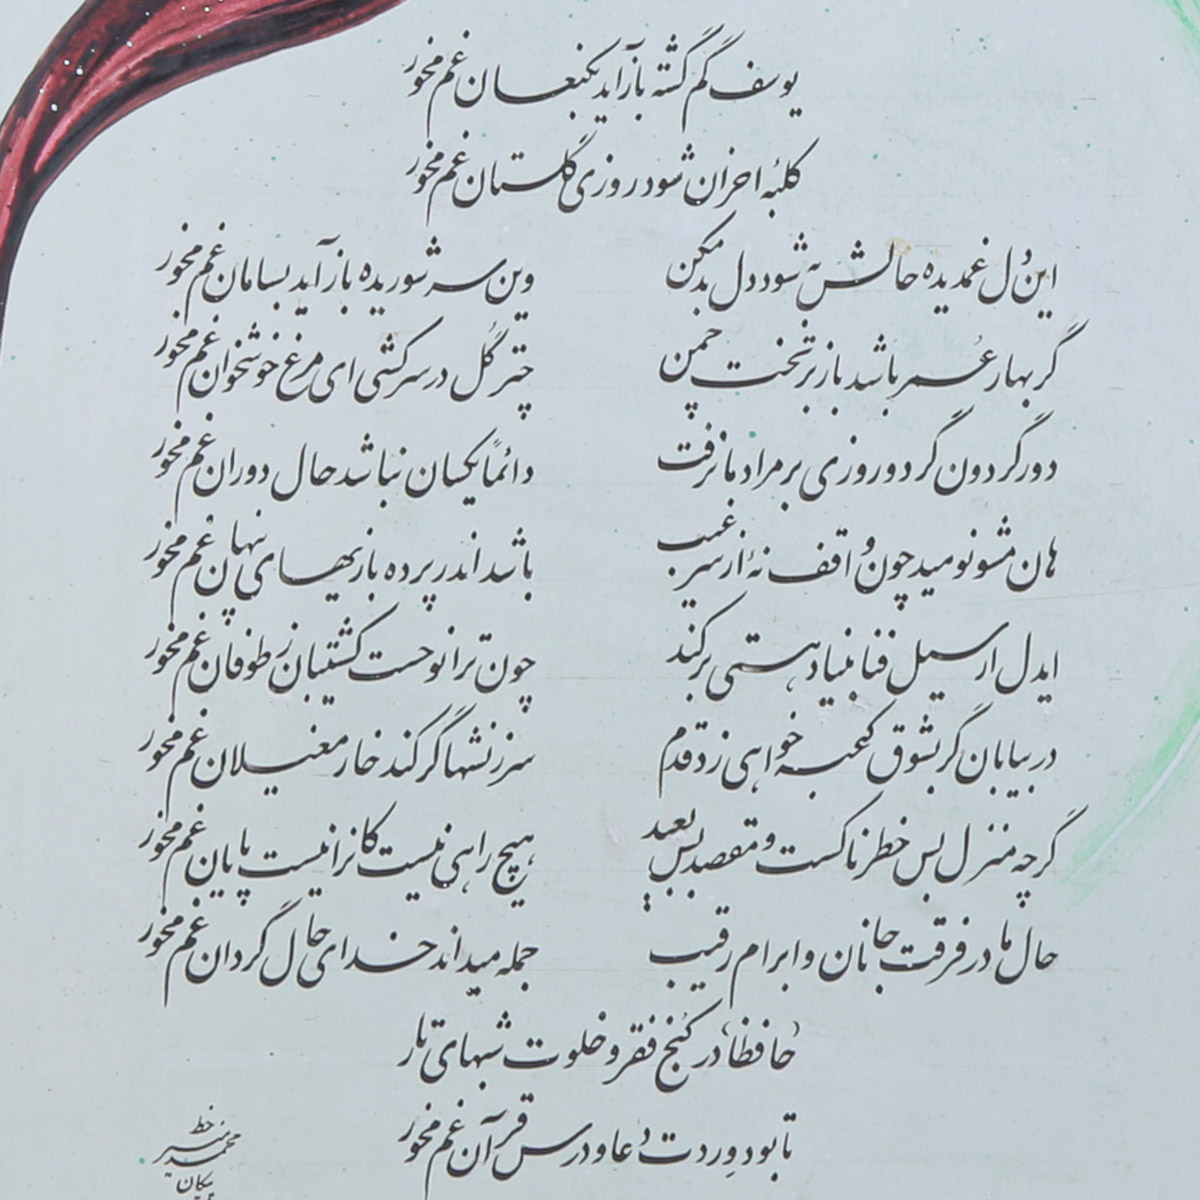 یوسف گم گشته باز آید بکنعان غم مخور
کلبهٔ احزان شود روزی گلستان غم مخور
این دل غمدیده حالش به شود دل بد مکن وین سر شوریده باز آید بسامان غم مخور
گر بهار عمر باشد باز بر تخت چمن چتر گل در سر کشی ای مرغ خوشخوان غم مخور
دور گردون گر دو روزی بر مراد ما نرفت دائماً یکسان نباشد حال دوران غم مخور
هان مشو نومید چون واقف نهٔ از سر غیب باشد اندر پرده بازیهای پنهان غم مخور
ایدل ار سیل فنا بنیاد هستی بر کند چون ترا نوحست کشتیبان ز طوفان غم مخور
در بیابان گر بشوق کعبه خواهی زد قدم سرزنشها گر کند خار مغیلان غم مخور
گرچه منزل بس خطرناکست و مقصد بس بعید هیچ راهی نیست کانرا نیست پایان غم مخور
حال ما در فرقت جانان و ابرام رقیب جمله میداند خدای حال گردان غم مخور
'حافظا' در کنج فقر و خلوت شبهای تار
تا بود وردت دعا و درس قرآن غم مخور
خط
محمد